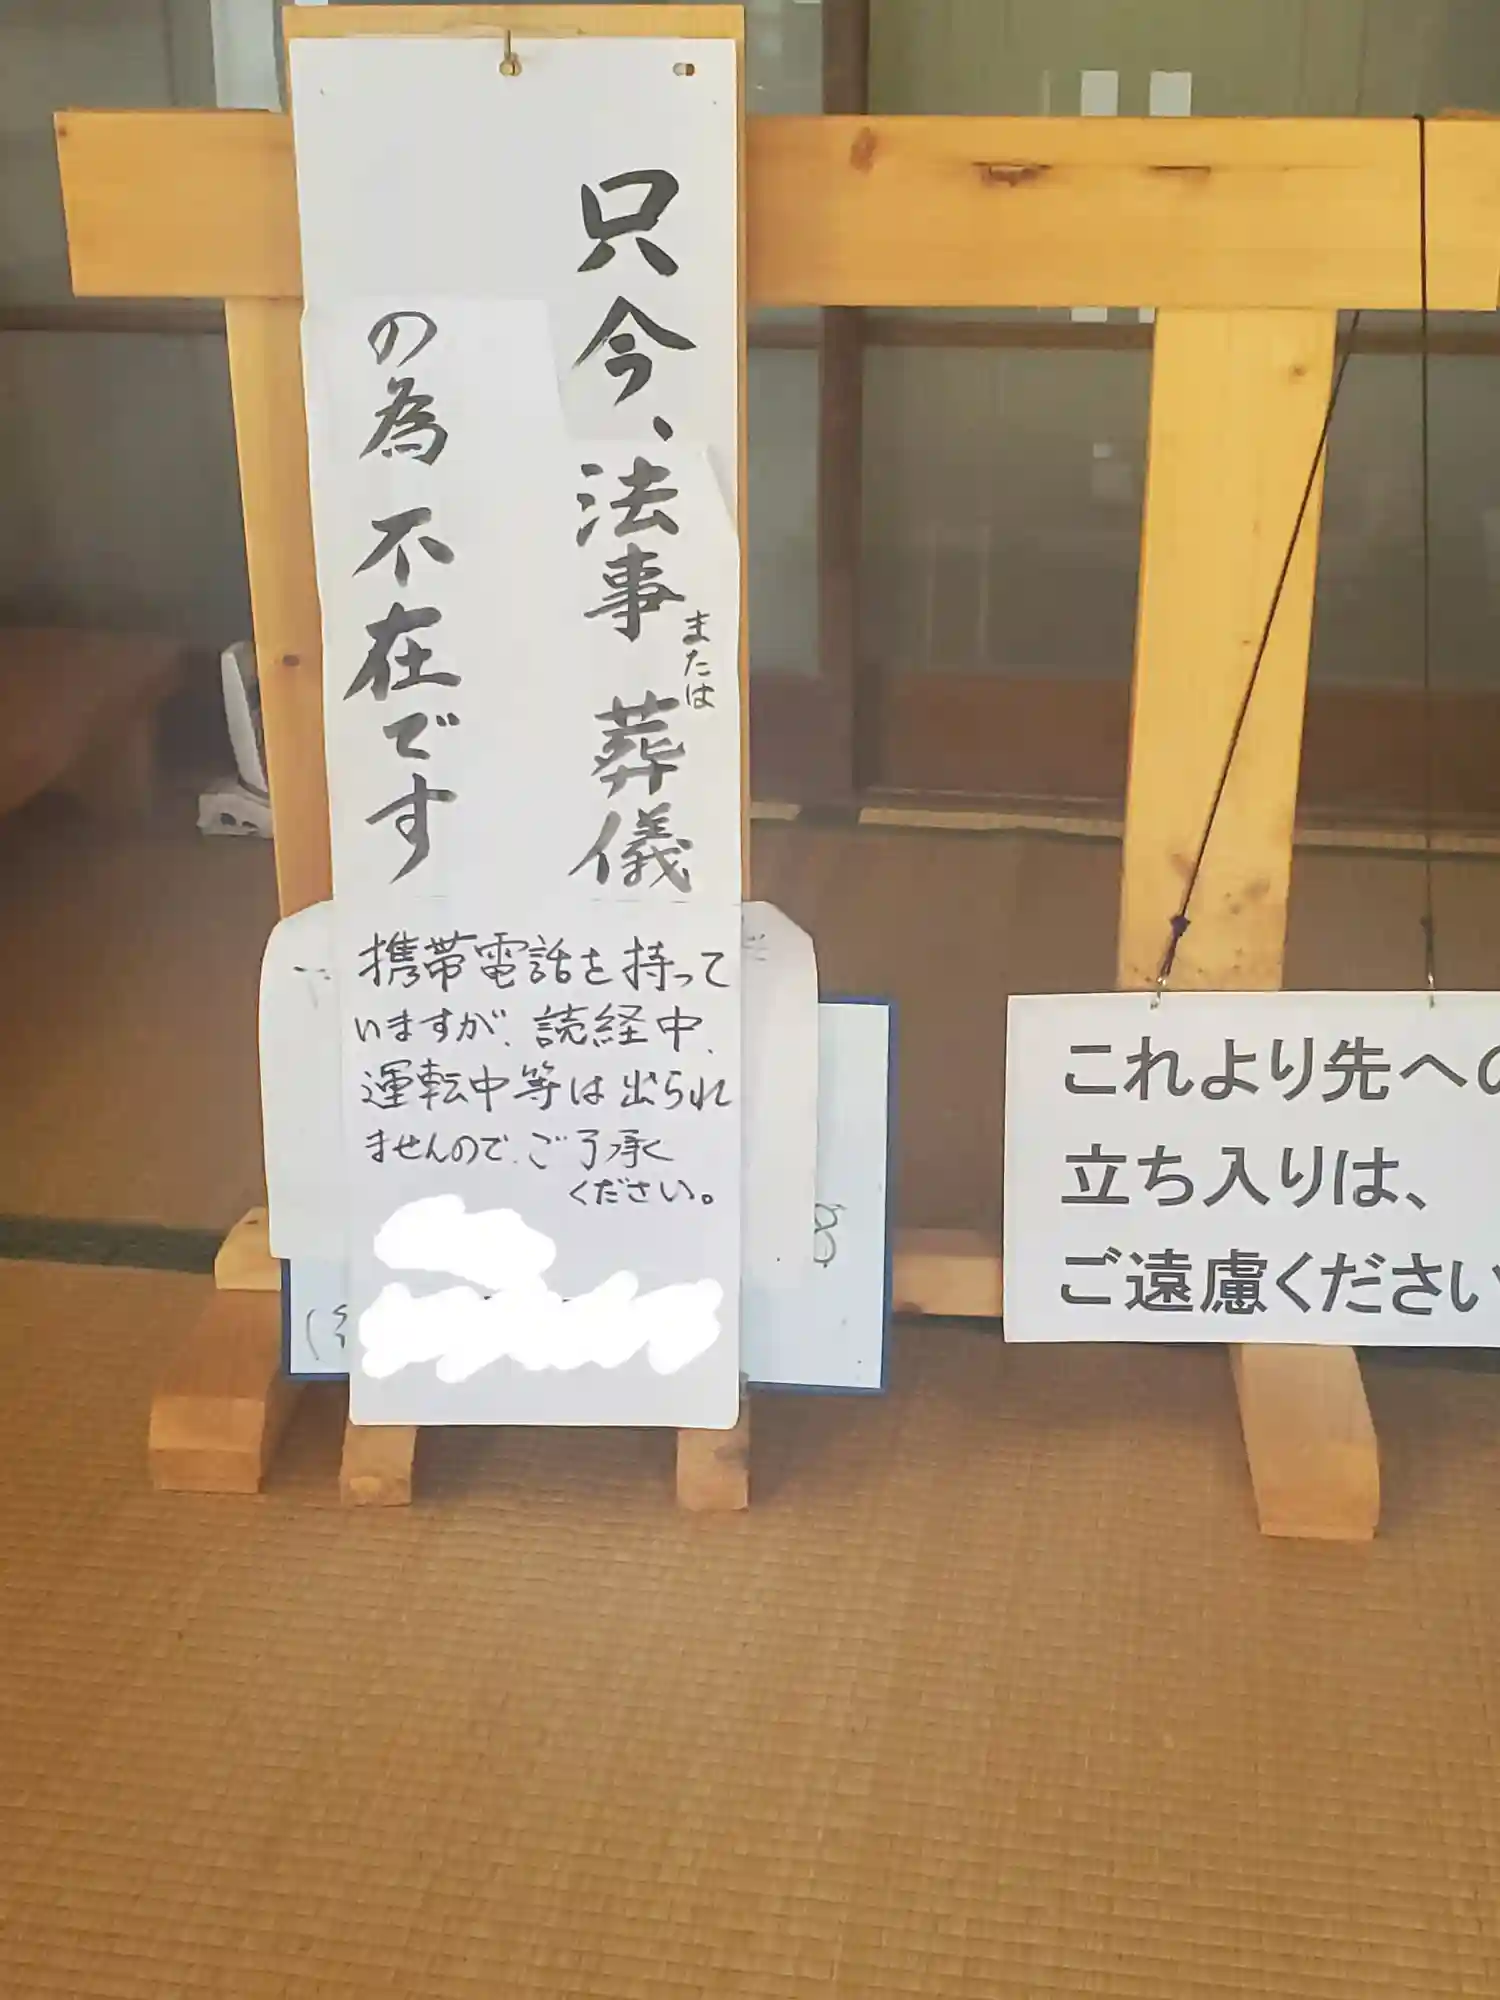 只今、法事または葬儀
の為不在です
携帯電話を持って
いますが、読経中、
運転中等は出られ
ませんので、ご了承く
ください。
これより先への
立ち入りは、
ご遠慮ください